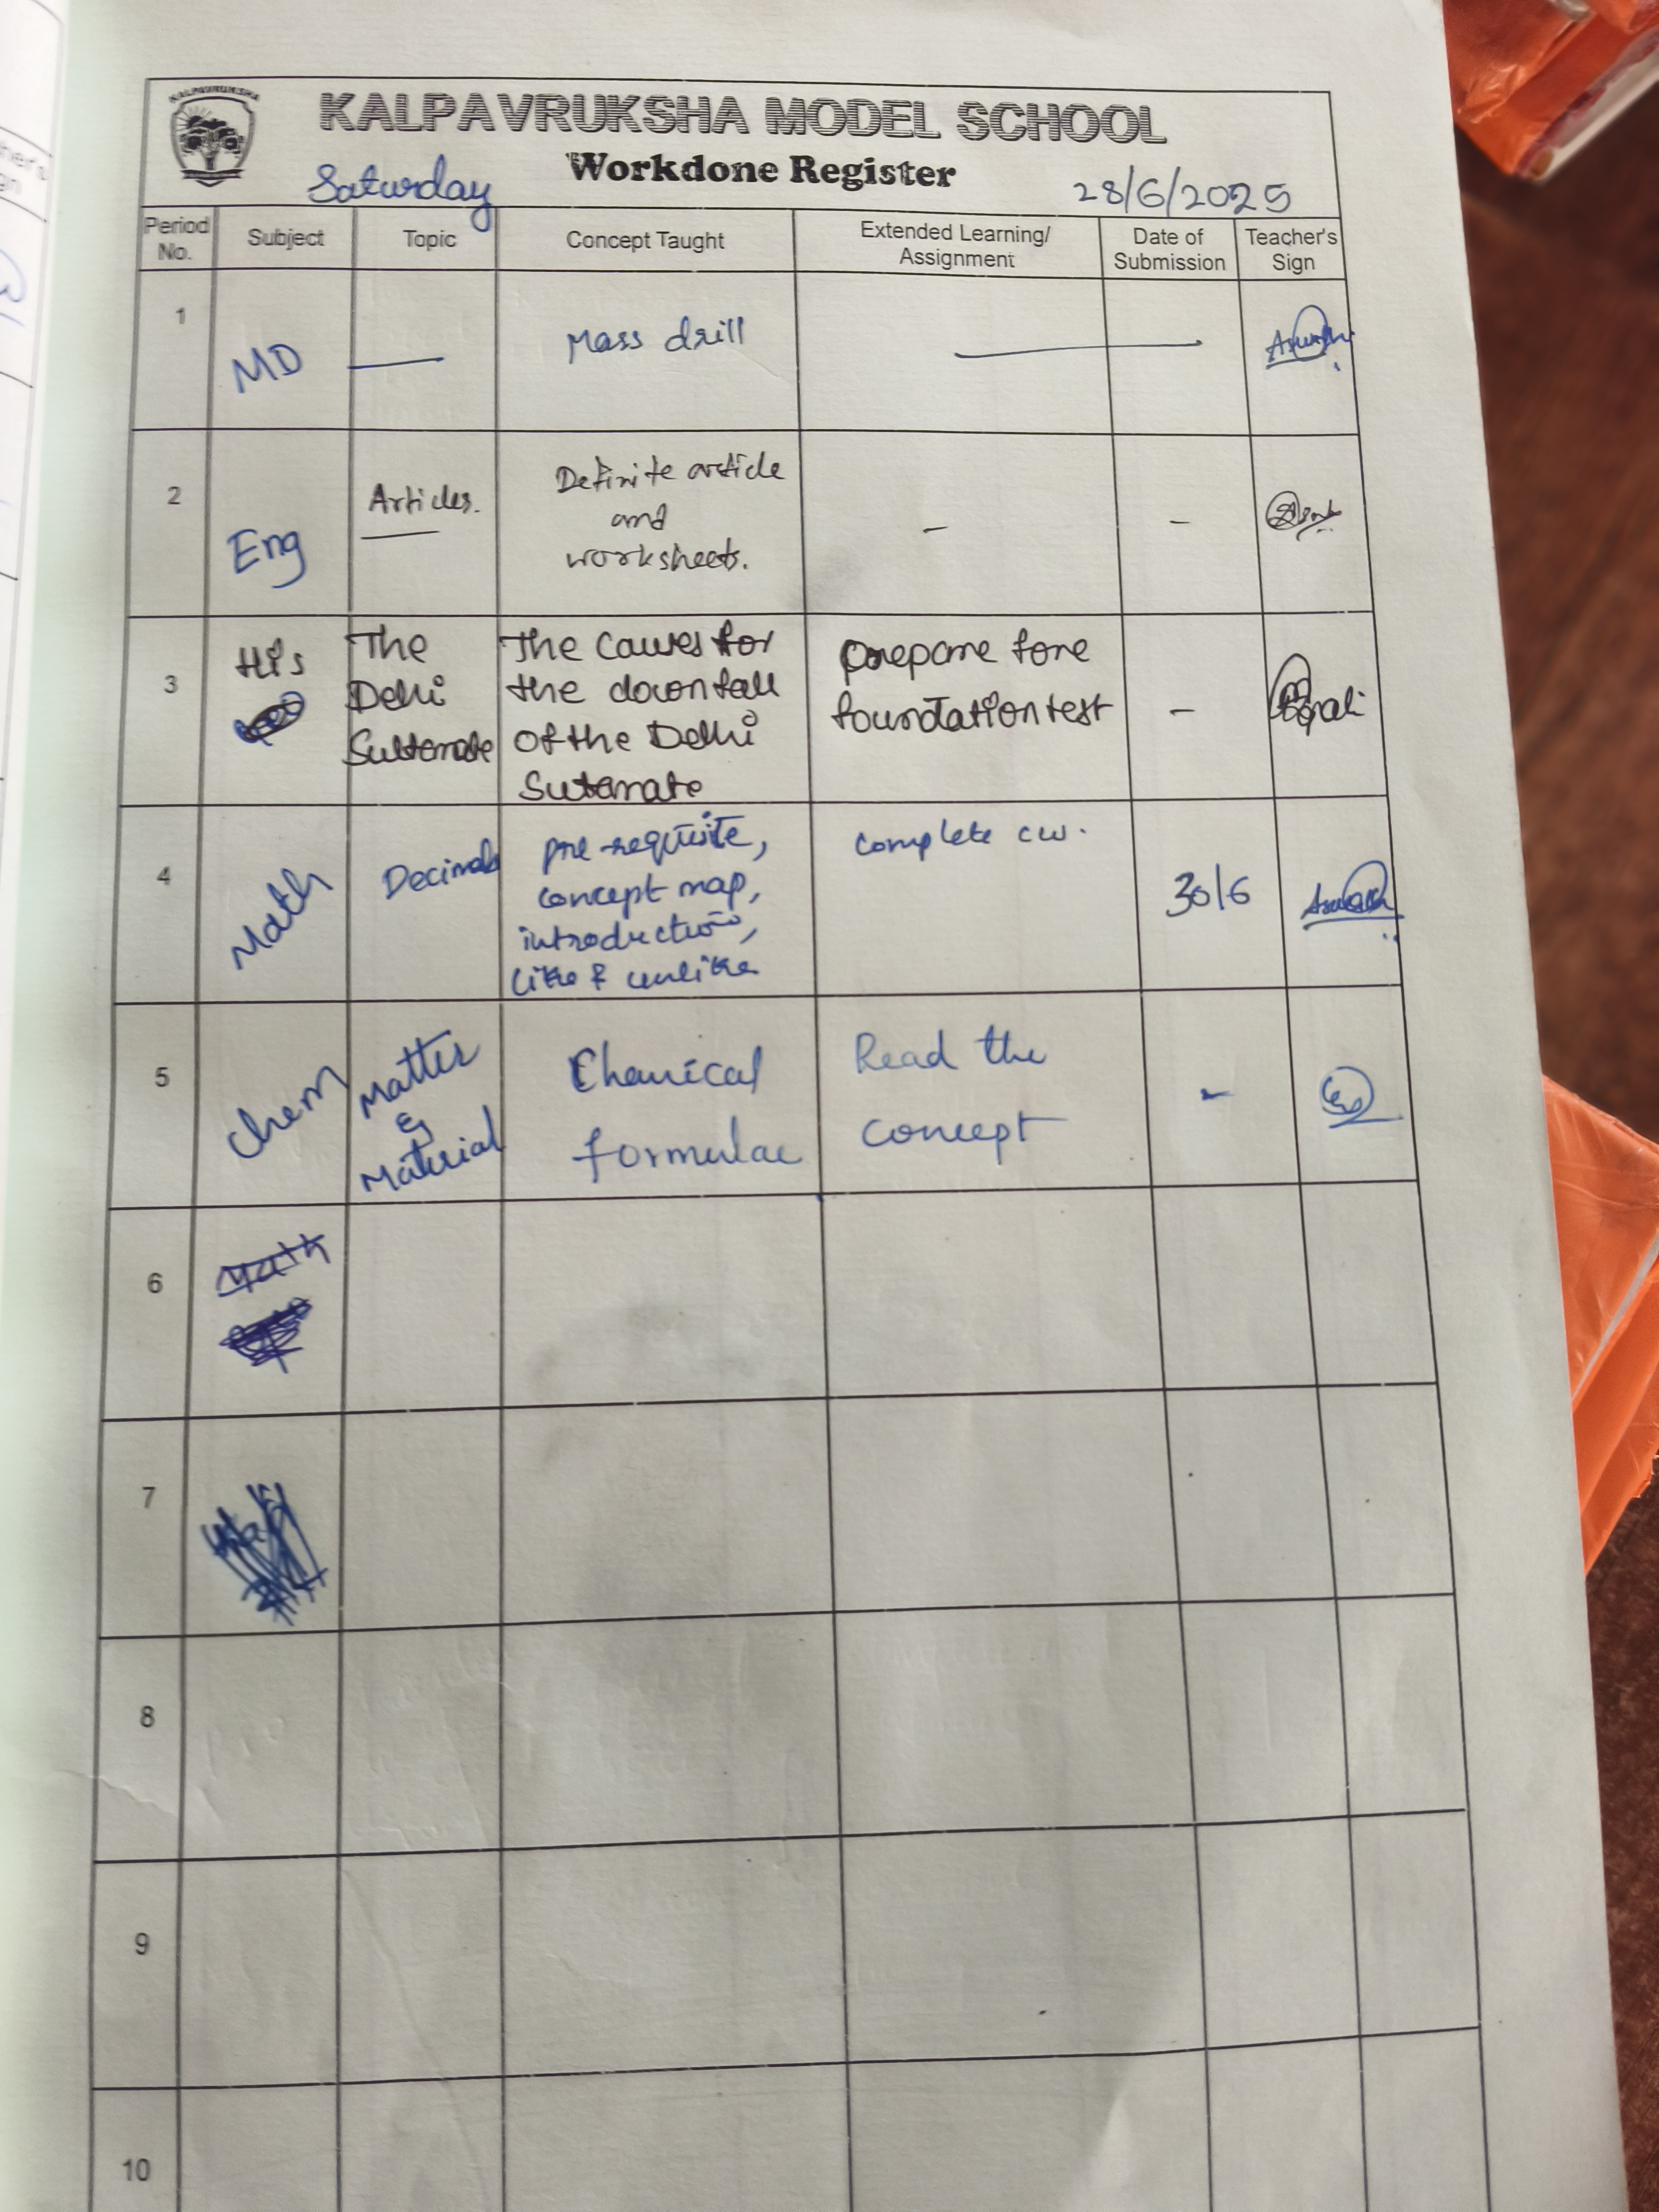 KALPAVRUKSHA
KALPAVRUKSHA MODEL SCHOOL
Workdone Register
Saturday 28/6/2025
Period No. Subject Topic Concept Taught Extended Learning/ Assignment Date of Submission Teacher's Sign
1 MD — Mass drill —
2 Eng Articles. Definite article
and
worksheets. - -
3 His The The Causes for prepare fore
Delhi the downfall foundation test -
Sultanate of the Delhi
Sutanate
4 Math Decimals pre-requisite, complete cw. 30/6
concept map,
introduction,
like & unlike
5 Chem Matter Chemical Read the -
& formulae concept
Material
6 Math
7
8
9
10